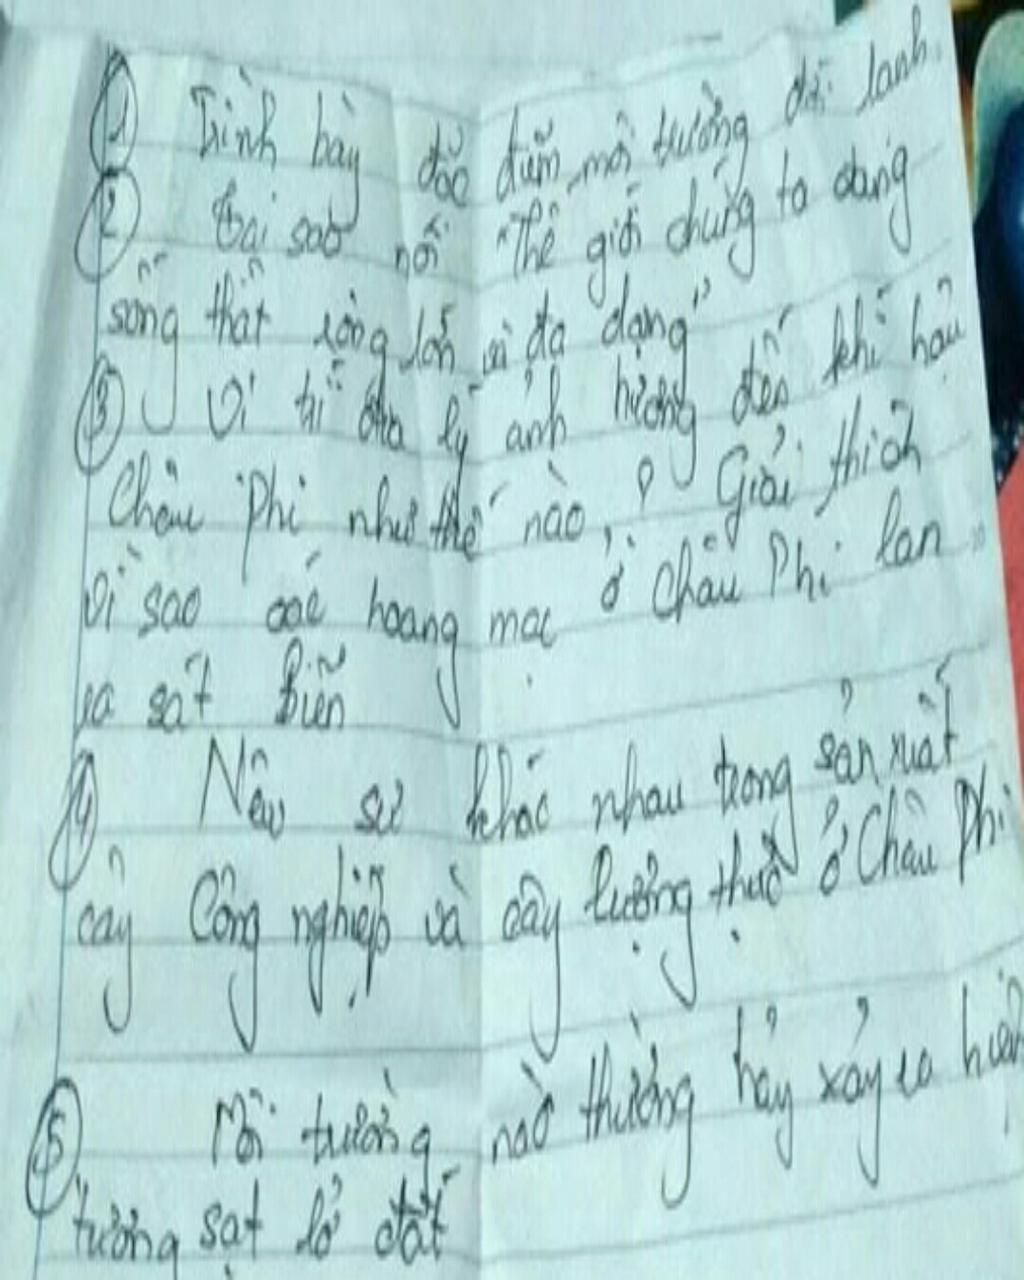 1 Trình bày đặc điểm môi trường đới lạnh
2 Tại sao nói "Thế giới chúng ta đang
sống thật rộng lớn và đa dạng"
3 Vị trí địa lý ảnh hưởng đến khí hậu
Châu Phi như thế nào? Giải thích
vì sao các hoang mạc ở Châu Phi lan
ra sát biển
4 Nêu sự khác nhau trong sản xuất
cây Công nghiệp và cây lương thực ở Châu Phi
5 Môi trường nào thường hảy xảy ra hiện
tượng sạt lở đất